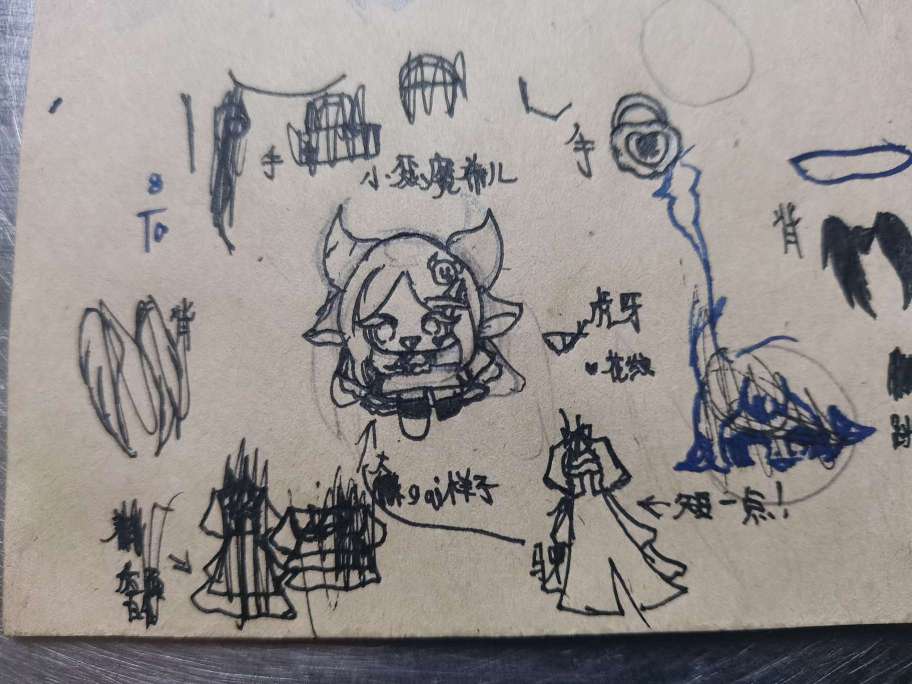 手
手
小恶魔布儿
8
To
背
背
虎牙
花纹
大
gai样子
←短一点！